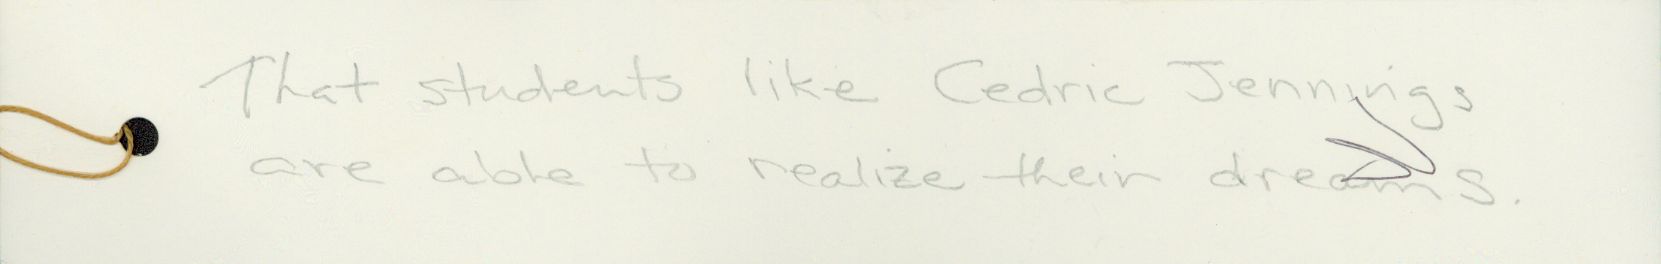 That students like Cedric Jennings
are able to realize their dreams.